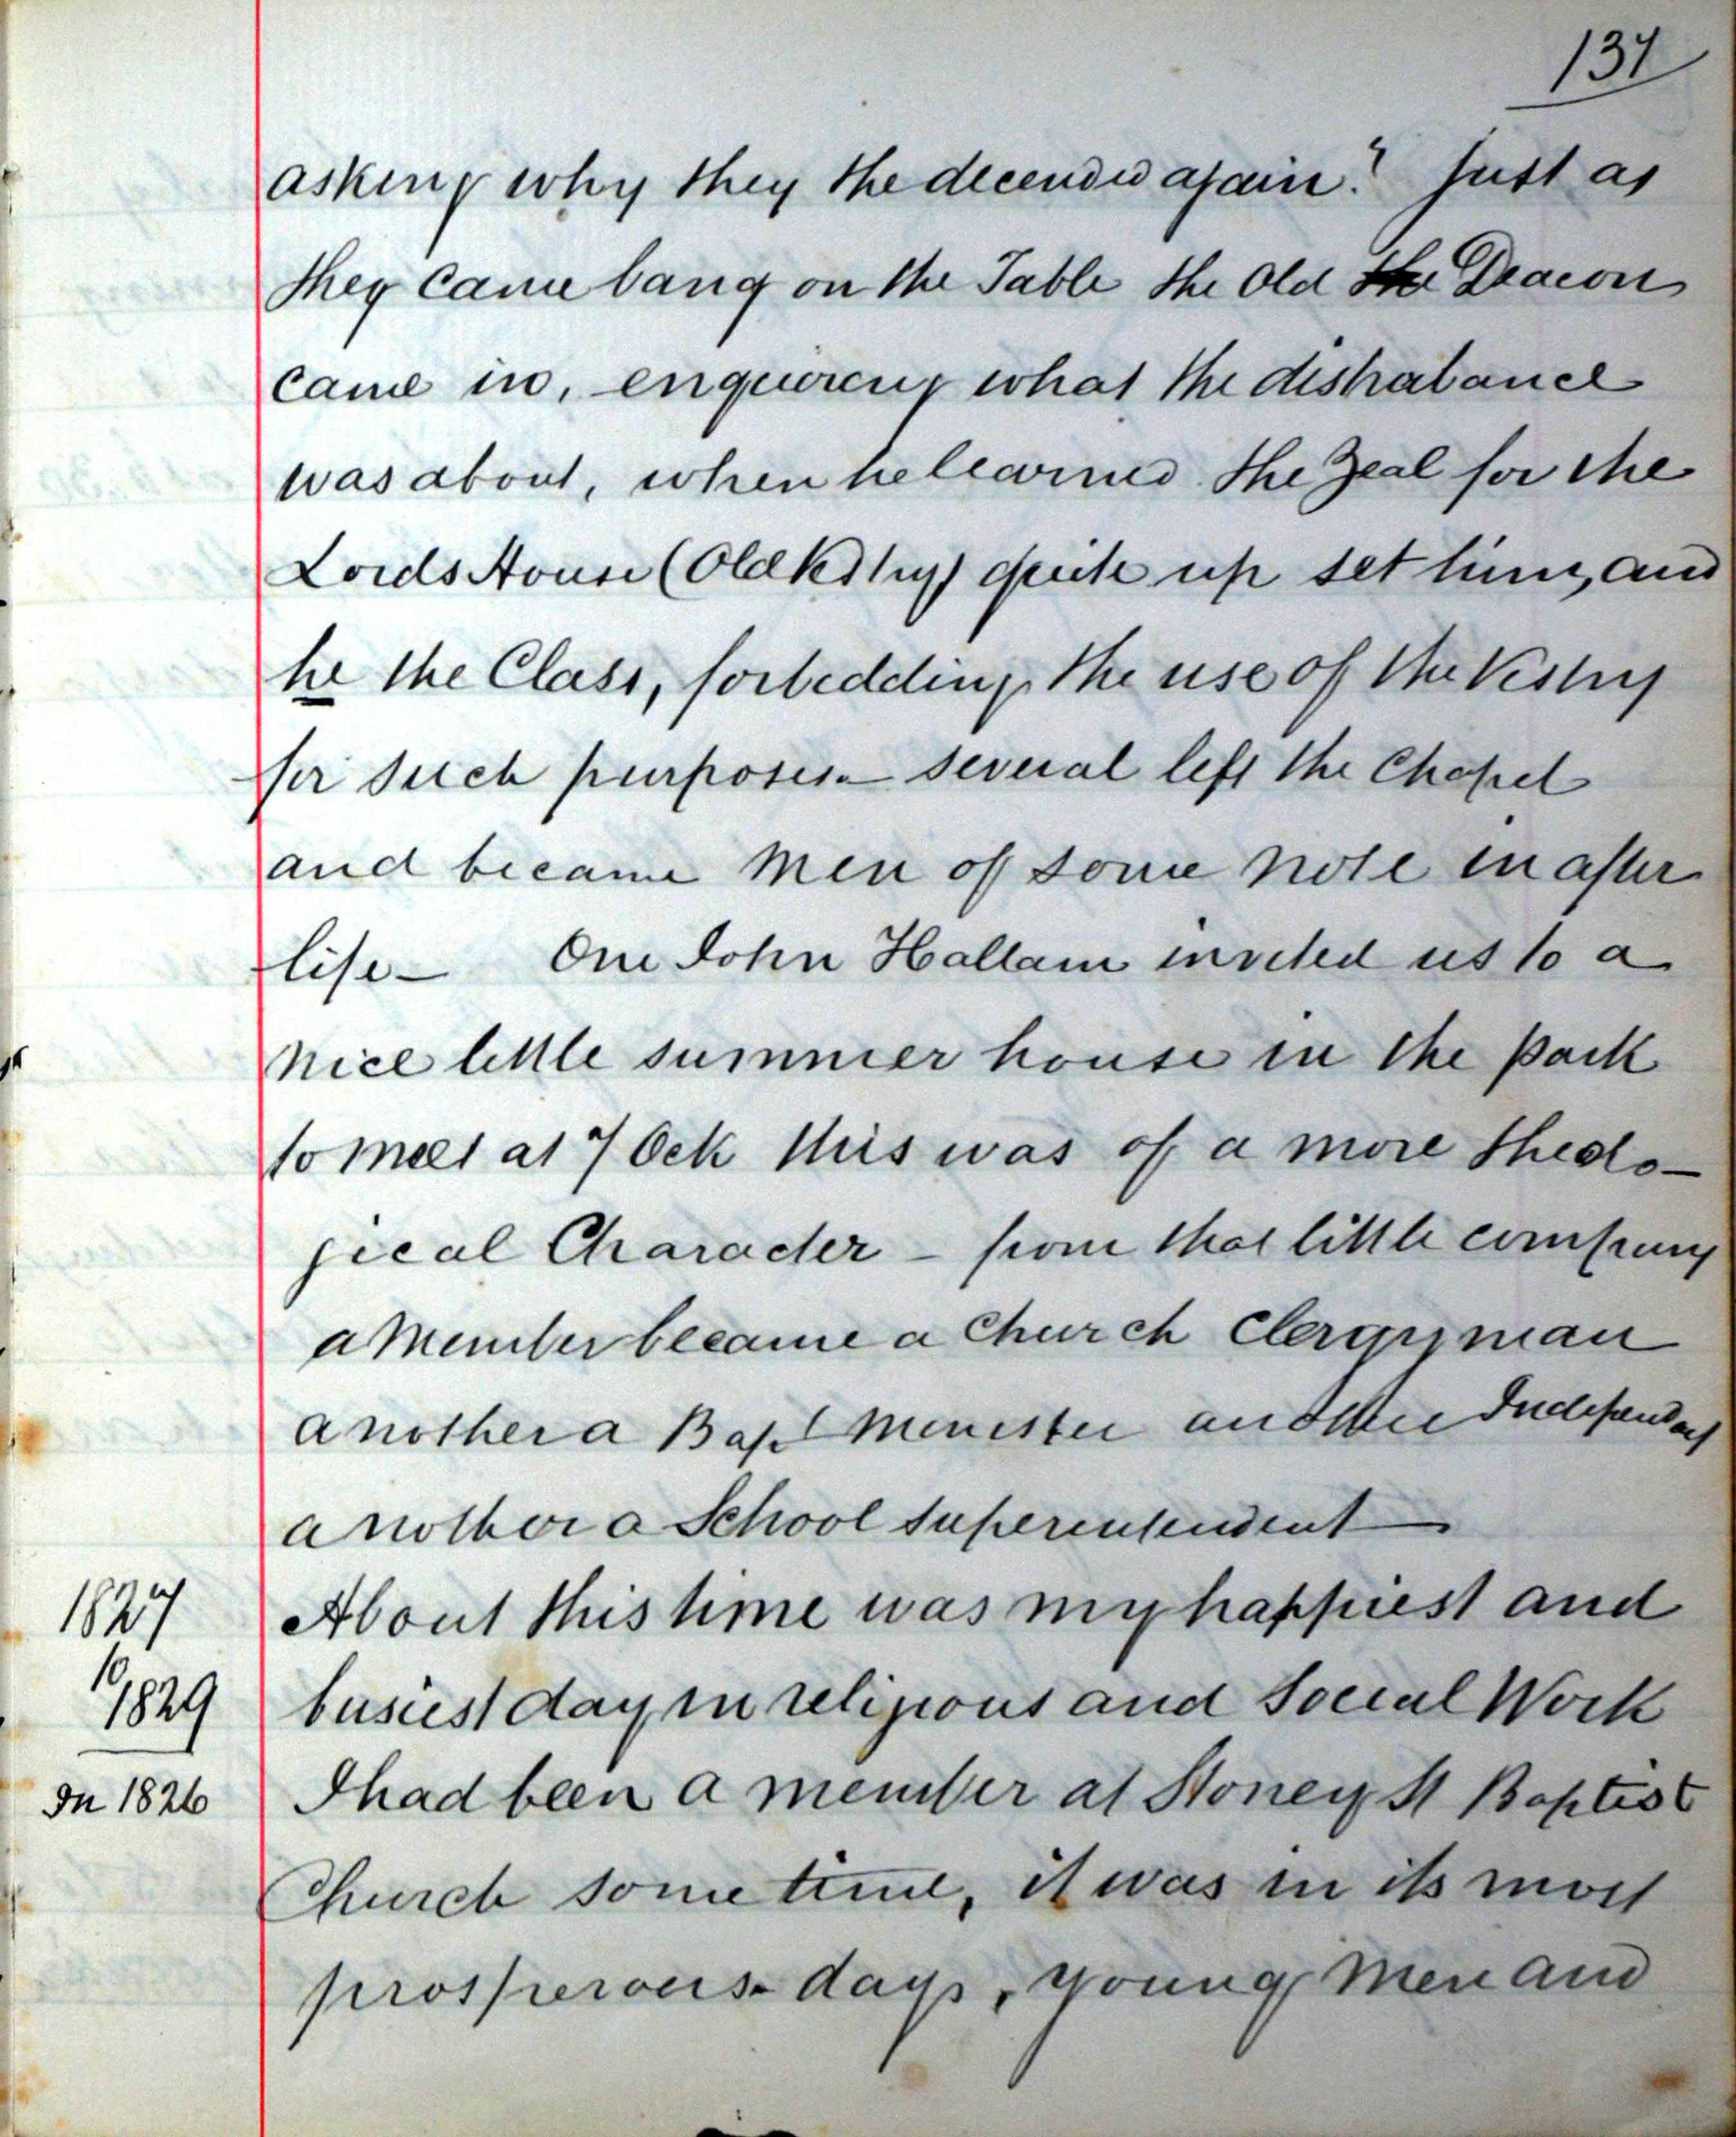 137
asking why they the decended again? Just as
they came bang on the Table the Old the Deacon
came in, enquireing what the disturbance
was about, when he learned the Zeal for the
Lords House (Old Vestry) quite up set him, and
he the Class, forbedding the use of the Vestry
for such purposes - several left the Chapel
and became Men of some note in after
life - One John Hallam invited us to a
nice little summer house in the park
to meet at 7 Ock this was of a more theolo-
gical Character - from that little company
a Member became a Church Clergyman
another a Bapt Minister another Independant
another a School Superentendent
1827 About this time was my happiest and
to 1829 busiest day in religious and Social Work
In 1826 I had been a member at Stoney St Baptist
Church some time, it was in its most
prosperous days, young Men and